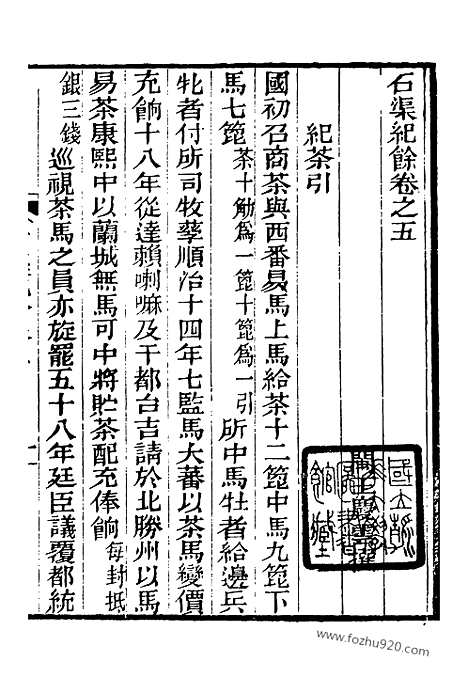 石渠紀餘卷之五
閩王慶雲撰
紀茶引
國初召商茶與西番易馬上馬給茶十二篦中馬九篦下
馬七篦茶十觔為一篦十篦為一引所中馬牡者給邊兵
牝者付所司牧孳順治十四年七監馬大蕃以茶馬變價
充餉十八年從達賴喇嘛及干都台吉請於北勝州以馬
易茶康熙中以蘭城無馬可中將貯茶配充俸餉每封抵
銀三錢巡視茶馬之員亦旋罷五十八年廷臣議覆都統
www.fozhu920.com